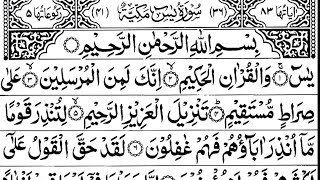 اٰيَاتُهَا ٨٣ (٣٦) سُوْرَةُ يٰسٓ مَكِّيَّةٌ (٤١) رُكُوْعَاتُهَا ٥
بِسْمِ اللّٰهِ الرَّحْمٰنِ الرَّحِيْمِ ۝
يٰسٓ ۝١ وَالْقُرْاٰنِ الْحَكِيْمِ ۝٢ اِنَّكَ لَمِنَ الْمُرْسَلِيْنَ ۝٣ عَلٰى
صِرَاطٍ مُّسْتَقِيْمٍ ۝٤ تَنْزِيْلَ الْعَزِيْزِ الرَّحِيْمِ ۝٥ لِتُنْذِرَ قَوْمًا
مَّآ اُنْذِرَ اٰبَآؤُهُمْ فَهُمْ غٰفِلُوْنَ ۝٦ لَقَدْ حَقَّ الْقَوْلُ عَلٰٓى